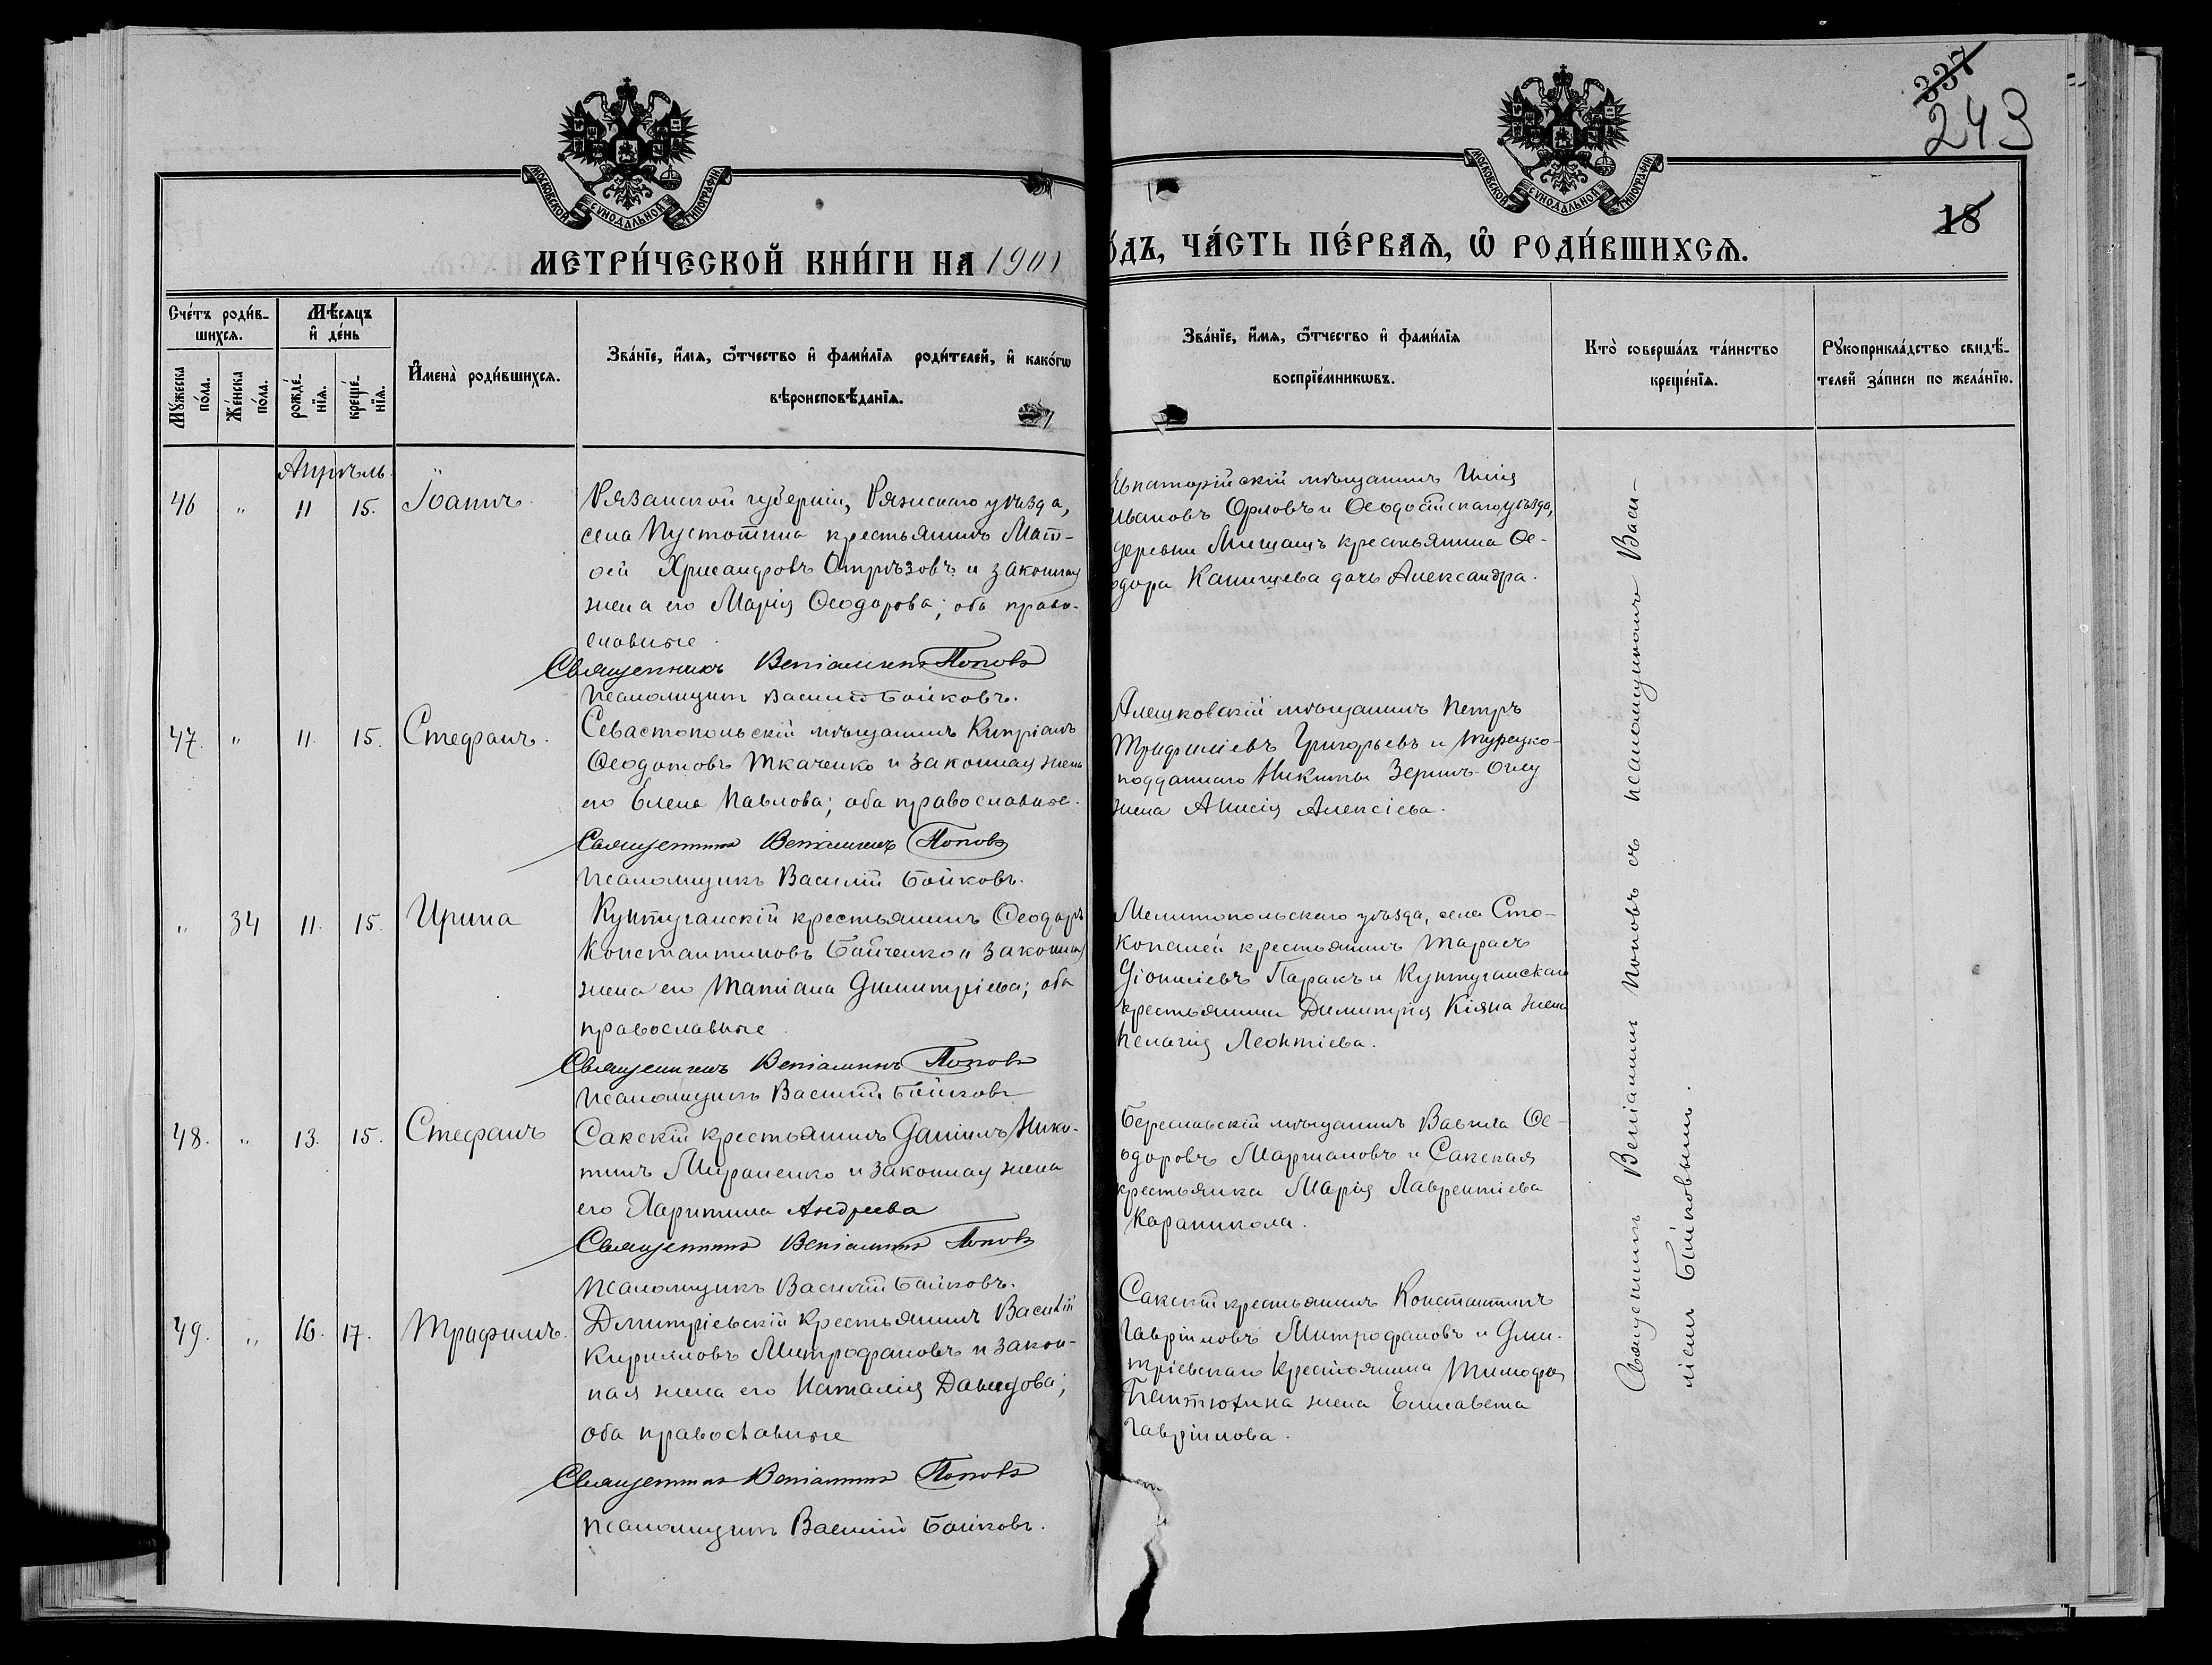 337
243
18
МОСКОВСКОЙ СѴНОДАЛЬНОЙ ТИПОГРАФІИ
МОСКОВСКОЙ СѴНОДАЛЬНОЙ ТИПОГРАФІИ
МЕТРИ́ЧЕСКОЙ КНИ́ГИ НА 1901
О́ДЪ, ЧА́СТЬ ПЕ́РВАѦ, Ѡ҆ РОДИ́ВШИХСѦ.
Сче́тъ роди́в-
шихсѧ.
Мꙋ́жеска по́ла.
Же́нска по́ла.
Мѣ́сѧцъ
и҆ де́нь
рожде́-
нїѧ.
креще́-
нїѧ.
И҆мена̀ роди́вшихсѧ.
Зва́нїе, и҆́мѧ, ѻ҆́тчество и҆ фами́лїѧ роди́телей, и҆ како́гѡ
вѣроисповѣ́данїѧ.
Зва́нїе, и҆́мѧ, ѻ҆́тчество и҆ фами́лїѧ
воспрїе́мникѡвъ.
Кто̀ соверша́лъ та́инство
креще́нїѧ.
Рꙋкоприкла́дство свидѣ́-
телей за́писи по жела́нїю.
Апрѣль
46 " 11 15. Іоаннъ
Рязанской губерніи, Ряжскаго уѣзда,
села Пустотина крестьянинъ Мат-
ѳей Хрисанфовъ Отрѣзовъ и законная
жена его Марія Ѳеодорова; оба право-
славные.
Священникъ Веніаминъ Поповъ
Псаломщикъ Василій Бойковъ.
Евпаторійскій мѣщанинъ Илія
Ивановъ Орловъ и Ѳеодосійскаго уѣзда,
деревни крестьянина Ѳе-
одора Канищева дочь Александра.
47. " 11. 15. Стефанъ.
Севастопольскій мѣщанинъ Кипріанъ
Ѳеодотовъ Ткаченко и законная жена
его Елена Павлова; оба православные.
Священникъ Веніаминъ Поповъ
Псаломщикъ Василій Бойковъ.
Алешковскій мѣщанинъ Петръ
Трифиліевъ Григорьевъ и турецко-
подданнаго Никиты Зеринъ-Оглу
жена Анисія Алексіева.
" 34 11. 15. Ирина
Кунтуганскій крестьянинъ Ѳеодоръ
Константиновъ Байченко и законная
жена его Татіана Димитріева; оба
православные.
Священникъ Веніаминъ Поповъ
Псаломщикъ Василій Бойковъ
Мелитопольскаго уѣзда, села Сто-
копаней крестьянинъ Тарасъ
Діонисіевъ Паракъ и Кунтуганскаго
крестьянина Димитрія Кіяна жена
Пелагія Леонтіева.
48. " 13. 15. Стефанъ
Сакскій крестьянинъ Даніилъ Ники-
тинъ Мираненко и законная жена
его Харитина Андреева
Священникъ Веніаминъ Поповъ
Псаломщикъ Василій Бойковъ.
Береславскій мѣщанинъ Вавила Ѳе-
одоровъ Маргналовъ и Сакская
крестьянка Марія Лаврентіева
Караникола.
49. " 16. 17. Трифилъ.
Дмитріевскій крестьянинъ Василій
Кирилловъ Митрофановъ и закон-
ная жена его Наталія Давидова;
оба православные
Священникъ Веніаминъ Поповъ
Псаломщикъ Василій Бойковъ.
Сакскій крестьянинъ Константинъ
Гавріиловъ Митрофановъ и Дми-
тріевскаго крестьянина Тимофея
Пантюхина жена Елисавета
Гавріилова.
Священникъ Веніаминъ Поповъ съ псаломщикомъ Васи-
ліемъ Бойковымъ.